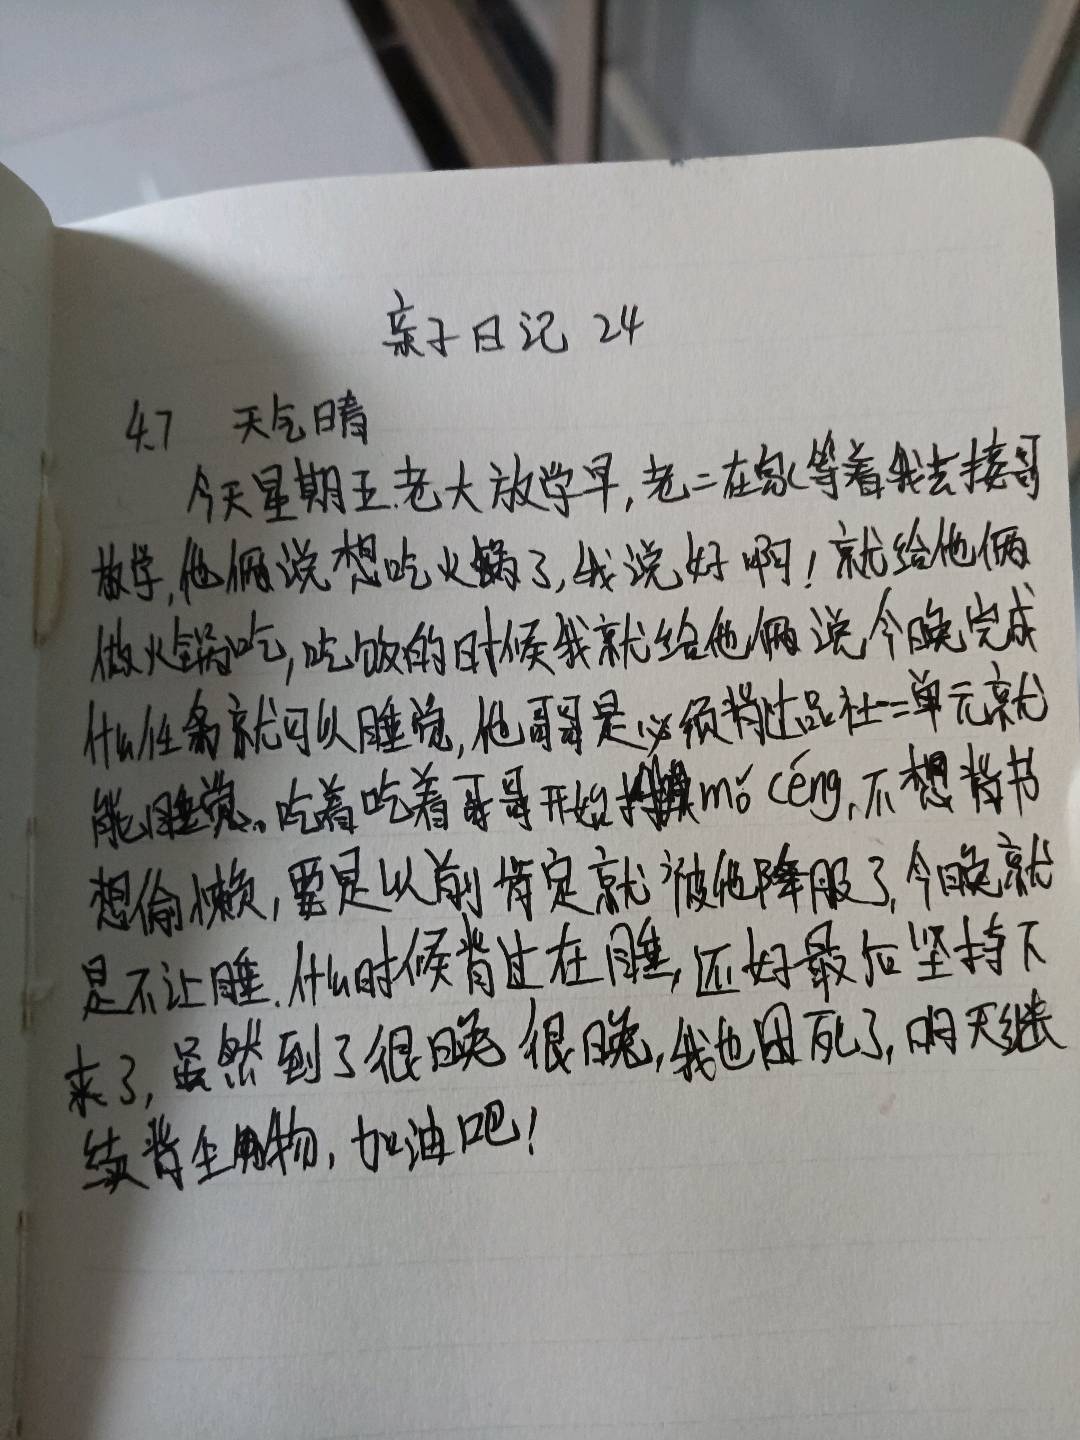 亲子日记 24
4.7 天气晴
今天星期五.老大放学早,老二在家等着我去接哥
放学,他俩说想吃火锅了,我说好啊!就给他俩
做火锅吃,吃饭的时候我就给他俩说今晚完成
什么任务就可以睡觉,他哥哥是必须背过品社二单元就
能睡觉。吃着吃着哥哥开始 mó céng,不想背书
想偷懒,要是以前肯定就被他降服了,今晚就
是不让睡.什么时候背过在睡,还好最后坚持下
来了,虽然到了很晚很晚,我也困死了,明天继
续背生物,加油吧!